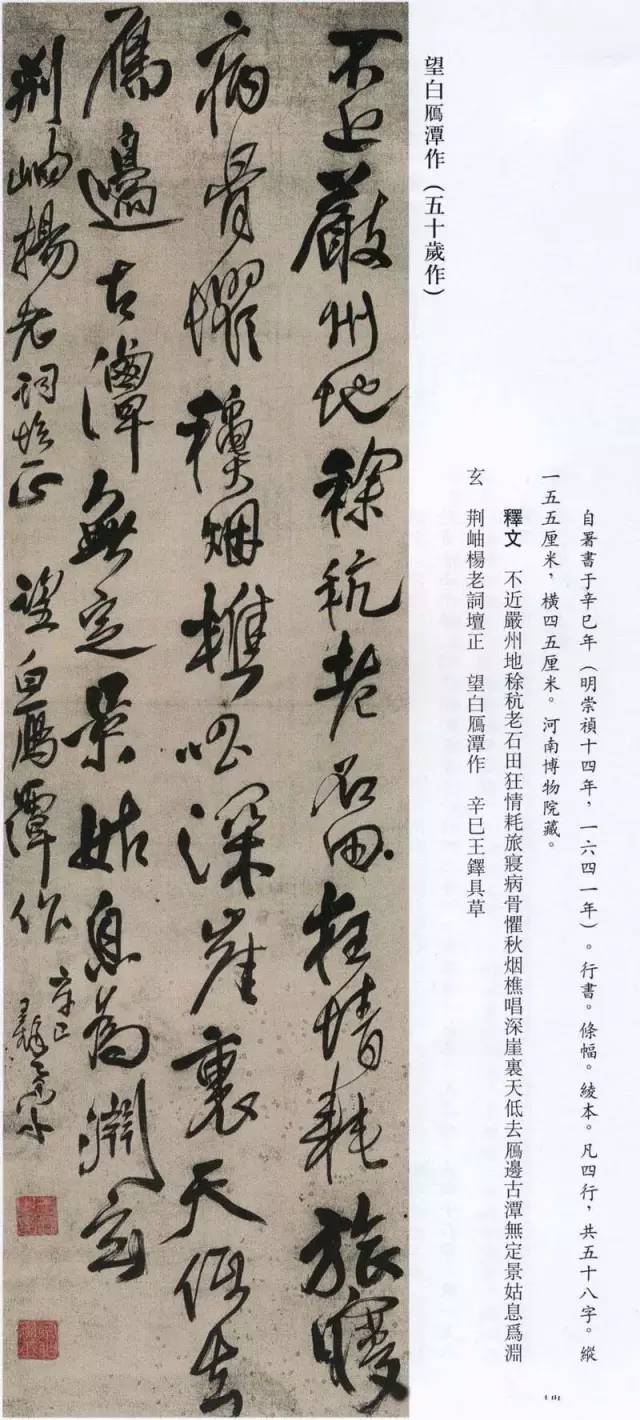 望白鴈潭作（五十歲作）
自署書于辛巳年（明崇禎十四年，一六四一年）。行書。條幅。綾本。凡四行，共五十八字。縱
一五五厘米，橫四五厘米。河南博物院藏。
釋文　不近嚴州地稌秔老石田狂情耗旅寢病骨懼秋烟樵唱深崖裏天低去鴈邊古潭無定景姑息爲淵
玄　荆岫楊老詞壇正　望白鴈潭作　辛巳王鐸具草
不近嚴州地稌秔老石田狂情耗旅寢
病骨懼穐烟樵唱深崖裏天低去
鴈邊古潭無定景姑息為淵玄
荆岫楊老詞壇正　望白鴈潭作　辛巳王鐸具草